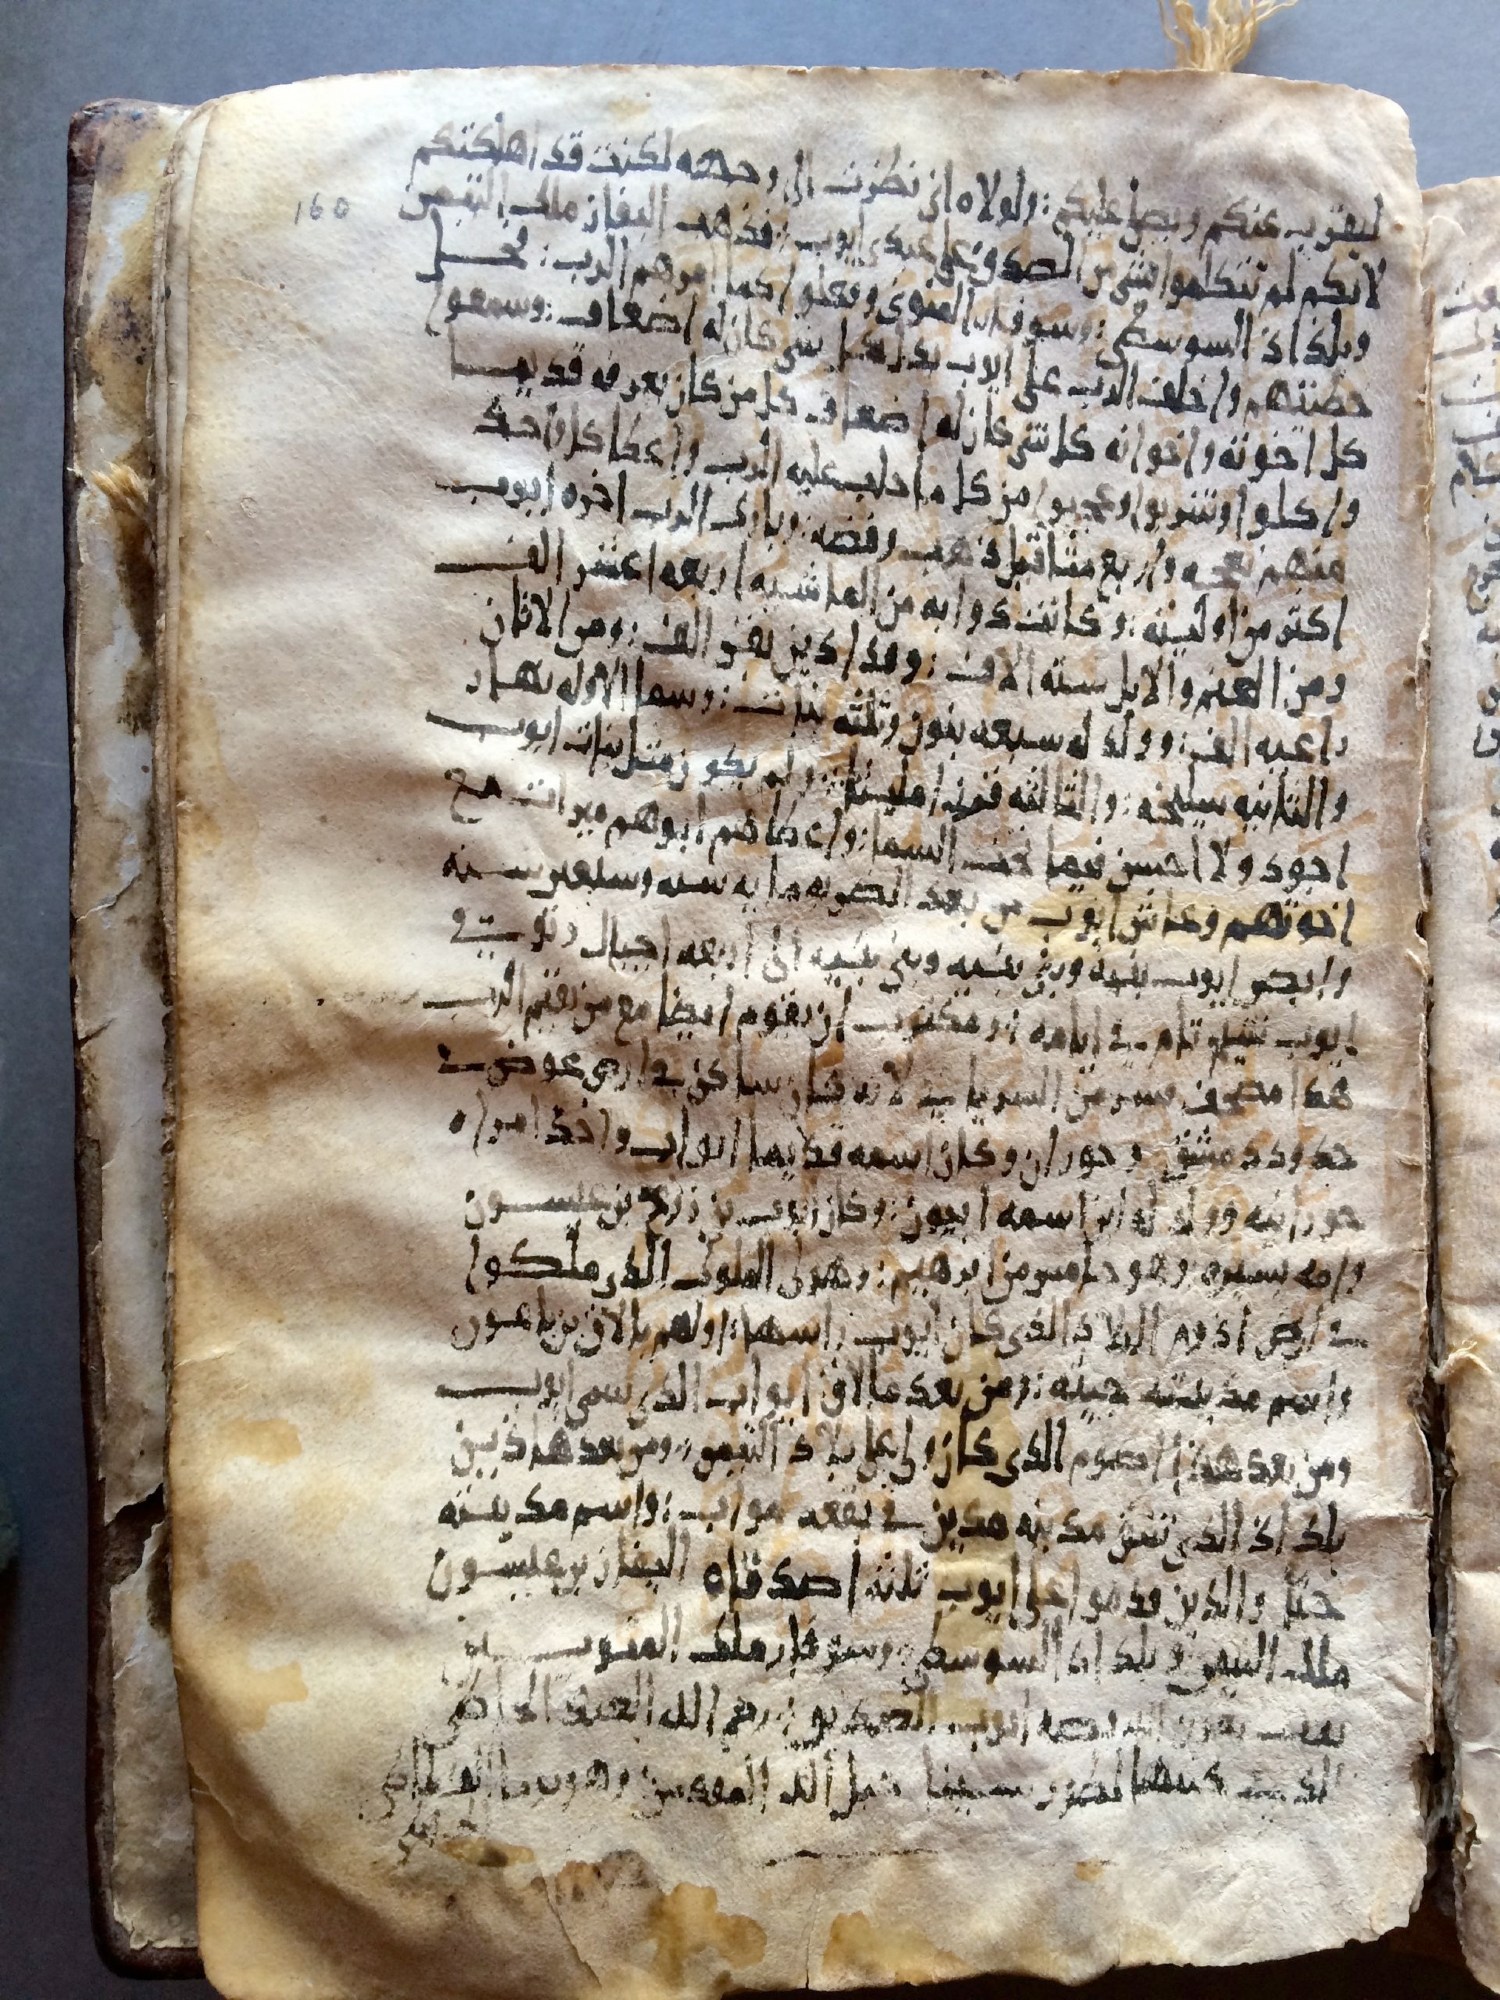 160
ليقرب عنكم ويصل عليكم : ولولاه اني نظرت الى وجهه لكنت قد اهلكتكم
لانكم لم تتكلموا بشي من الصدق على عبدي ايوب : فذهب اليفاز ملك التيمن
وبلداد السوسحي : وسوفار المنوي وفعلوا كما امرهم الرب : فحل
خطيتهم واخلف الرب على ايوب بدل كل شي كان له اضعاف : وسمعوا
كل اخوته واخواته كل شي كان له اضعاف كل من كان يعرفه قديما
واكلوا وشربوا وعجبوا من كل ما جلب عليه الرب واعطا كل واحد
منهم نعجه واربع مثاقيل ذهب وفضه : وبارك الرب اخره ايوب
اكثر من اوليته : وكانت دوابه من الماشيه اربعه اعشر الف
ومن الغنم والابل سته الاف : وفدادين بقر الف : ومن الاتان
راعيه الف : وولد له سبعه بنون وثلثه بنات : وسما الاوله نهار
والثانيه سليخه : والثالثه قرن : ولم يكون مثل بنات ايوب
اجود ولا احسن فيما تحت السما : واعطاهم ابوهم ميراث مع
اخوتهم وعاش ايوب من بعد الضربه مايه سنه وسبعين سنه
وابصر ايوب بنيه وبني بنيه وبني بنيه الى اربعه اجيال وتوفي
ايوب شيخ تام في ايامه : ومكتوب ان يقوم ايضا مع من يقيم الرب
هذا مصحف فسر من السريانيه لانه كان ساكن في ارض عوض في
حدود دمشق وحوران وكان اسمه قديما ايواب واخذ امراه
حورانيه وولد له ابن اسمه ابيون : وكان ايوب بن زارح بن عيسون
وامه بسره : وهو خامس من ابرهيم : وهولى الملوك الذي ملكوا
في ارض ادوم البلاد الذي كان ايوب راسها : اولهم بالاق بن باعون
واسم مدينته حبنه : ومن بعد بالاق ايواب الذي سمى ايوب
ومن بعد هذا اصوم الذي كان والي على بلاد التيمن : ومن بعد هداد بن
بلداد الذي شق مدينه مدين في بقعه مواب : واسم مدينته
حتا والذين قدموا على ايوب ثلثه اصدقاه اليفاز بن عيسون
ملك التيمن وبلداد السوسحي : وسوفار ملك المنويين
ايوب الصديق : رحم الله العبد الخاطي
الذي كتبها بطور سينا جبل الله المقدس